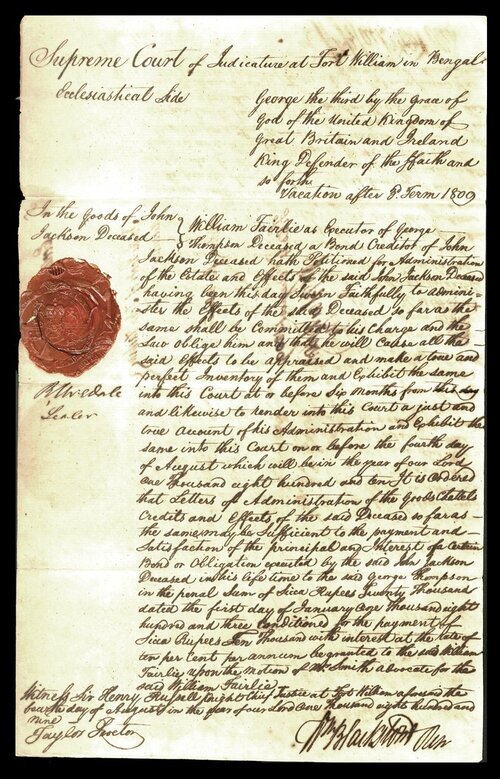 Supreme Court of Judicature at Fort William in Bengal
Ecclesiastical Side
George the third by the grace of
God of the United Kingdom of
Great Britain and Ireland
King Defender of the Faith and
so forth
Vacation after 3. Term 1809
In the goods of John
Jackson Deceased
William Fairlie as Executor of George
Thompson Deceased a Bond Creditor of John
Jackson Deceased hath Petitioned for Administration
of the Estate and Effects of the said John Jackson Deceased
having been this day Sworn Faithfully to admini-
ster the Effects of the said Deceased so far as the
same shall be Committed to his Charge and the
Law oblige him and that he will cause all the
said Effects to be appraised and make a true and
perfect Inventory of them and Exhibit the same
into this Court at or before Six Months from this day
and likewise to render into this Court a just and
true account of his Administration and Exhibit the
same into this Court on or before the fourth day
of August which will be in the year of our Lord
One Thousand eight hundred and ten It is ordered
that Letters of Administration of the Goods Chattels
Credits and Effects of the said Deceased so far as
the same may be Sufficient to the payment and
Satisfaction of the principal and Interest of a certain
Bond or Obligation executed by the said John Jackson
Deceased in his life time to the said George Thompson
in the penal Sum of Sicca Rupees Twenty Thousand
dated the first day of January One Thousand eight
hundred and three conditioned for the payment of
Sicca Rupees Ten Thousand with interest at the rate of
ten per Cent per annum be granted to the said William
Fairlie upon the motion of Mr. Smith Advocate for the
said William Fairlie
Sealer
Witness Sir Henry Russell Knight Chief Justice at Fort William aforesaid the
fourth day of August in the year of our Lord One Thousand eight hundred and
nine
Taylor Proctor
Wm Blackstone Regr